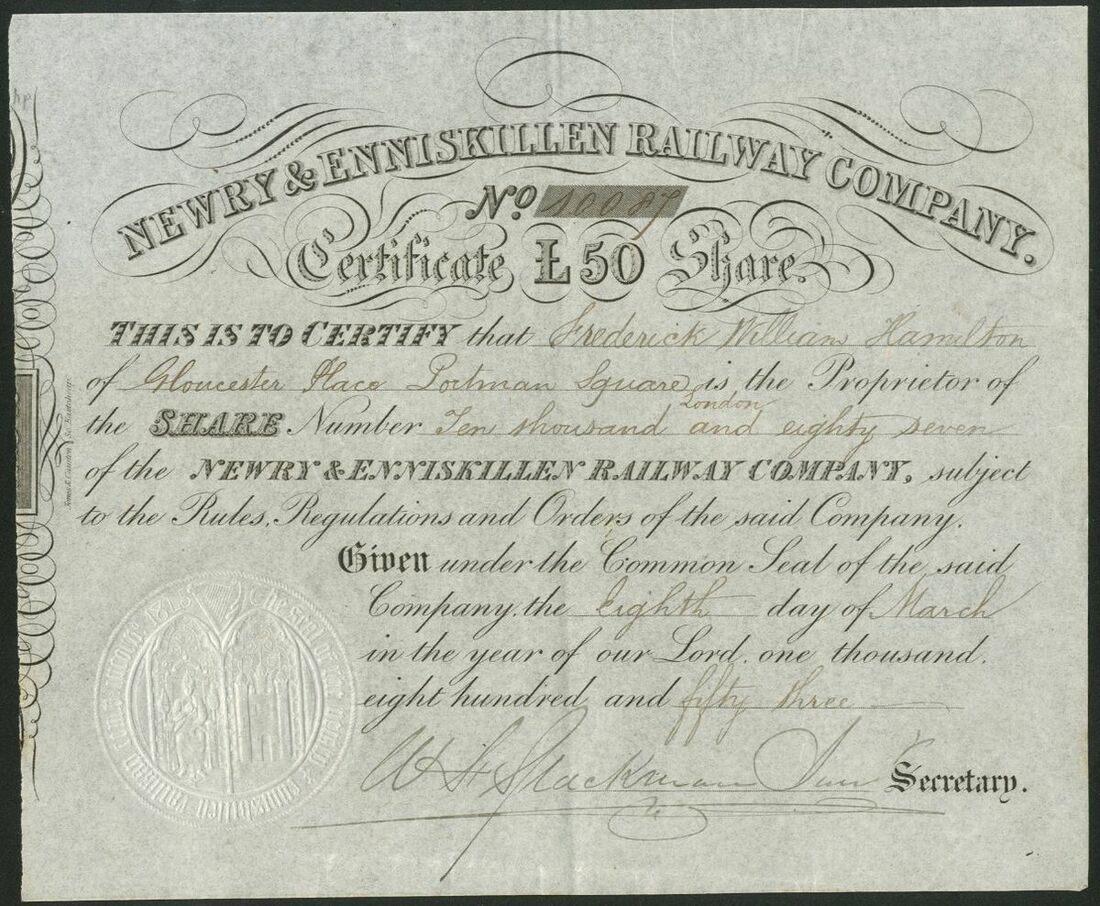 NEWRY & ENNISKILLEN RAILWAY COMPANY.
No. 10087
Certificate £50 Share.
THIS IS TO CERTIFY that Frederick William Hamilton
of Gloucester Place Portman Square is the Proprietor of
London
the SHARE Number Ten thousand and eighty seven
of the NEWRY & ENNISKILLEN RAILWAY COMPANY, subject
to the Rules, Regulations and Orders of the said Company.
Given under the Common Seal of the said
Company, the Eighth day of March
in the year of our Lord, one thousand,
eight hundred and fifty three
Secretary.